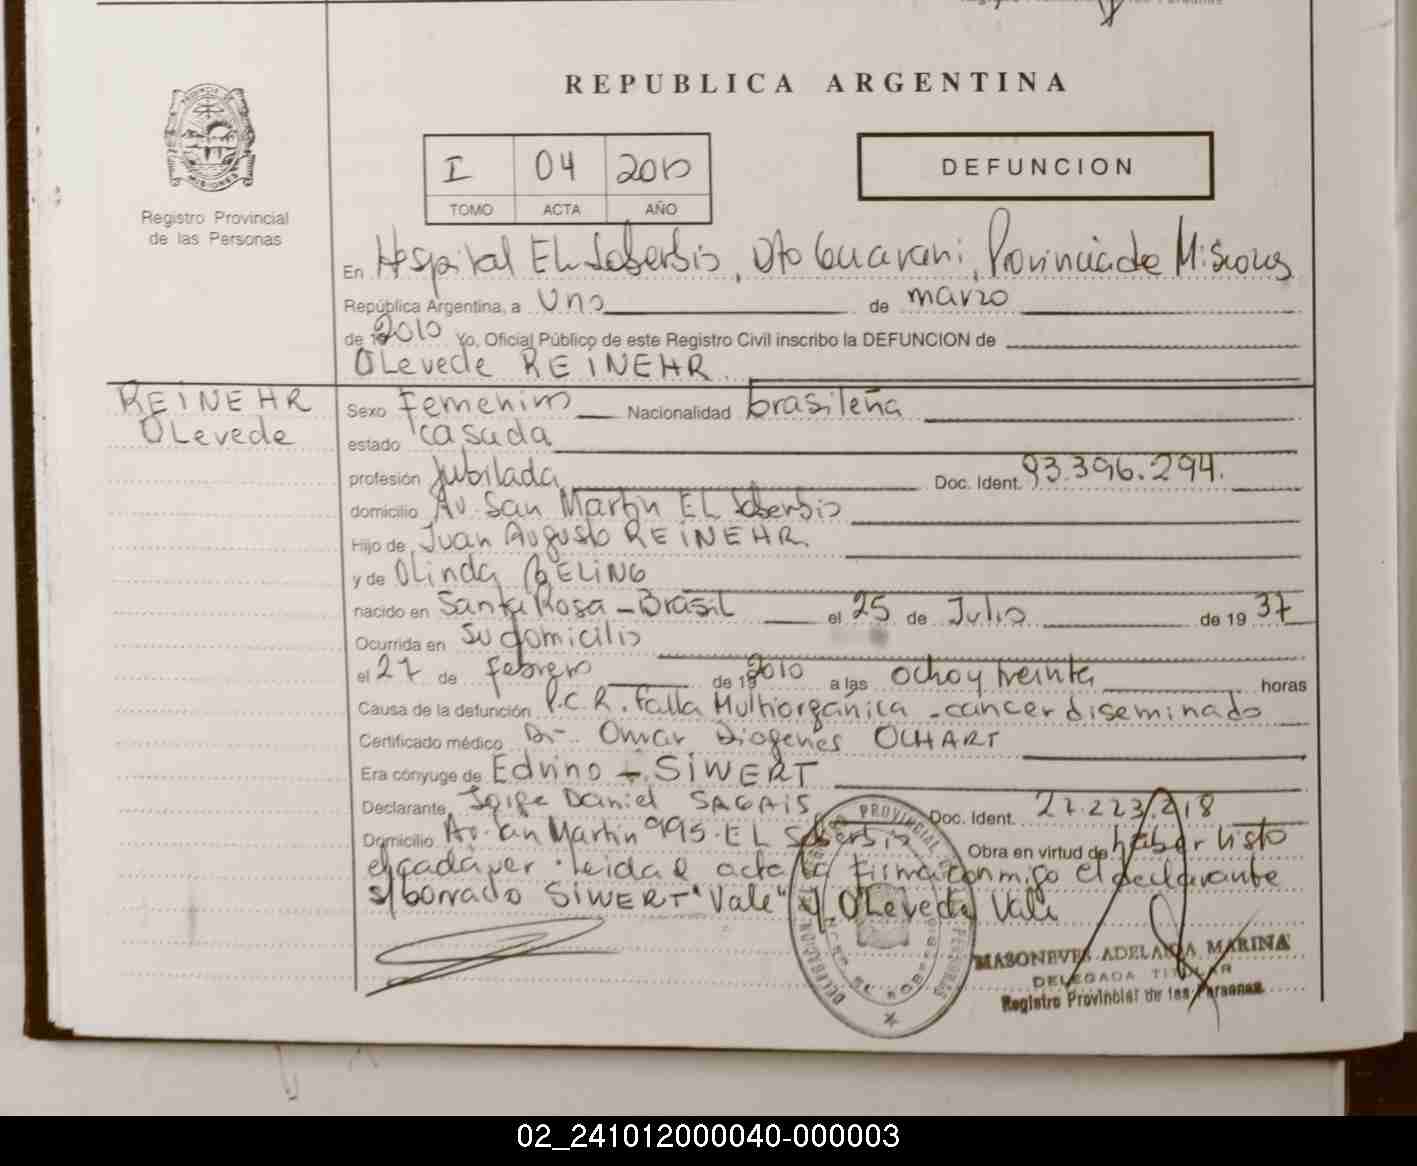 REPUBLICA ARGENTINA
PROVINCIA DE
MISIONES
Registro Provincial
de las Personas
I 04 2010
TOMO ACTA AÑO
DEFUNCION
En Hospital EL Soberbio, Dto Guarani, Provincia de Misiones
República Argentina, a uno de marzo
de 2010 Yo, Oficial Público de este Registro Civil inscribo la DEFUNCION de
OLevede REINEHR
REINEHR
OLevede
Sexo Femenino Nacionalidad brasileña
estado casada
profesión Jubilada Doc. Ident. 93.396.294.
domicilio Av. San Martin EL Soberbio
Hijo de Juan Augusto REINEHR.
y de OLinda BELING
nacido en Santa Rosa - Brasil el 25 de Julio de 19 37
Ocurrida en Su domicilio
el 27 de febrero de 2010 a las ocho y treinta horas
Causa de la defunción P.C.R. Falla Multiorgánica - cancer diseminado
Certificado médico Dr. Omar Diogenes OCHART
Era cónyuge de Edvino - SIWERT
Declarante Jorge Daniel SAGAIS Doc. Ident. 27.223.218
Domicilio Av. San Martin 995. EL Soberbio Obra en virtud de haber visto
el cadaver. Leida el acta la firma conmigo el declarante
s/borrado SIWERT "Vale" OLevede Vale
MASONEVES ADELAIDA MARINA
DELEGADA TITULAR
Registro Provincial de las Personas
02_241012000040-000003